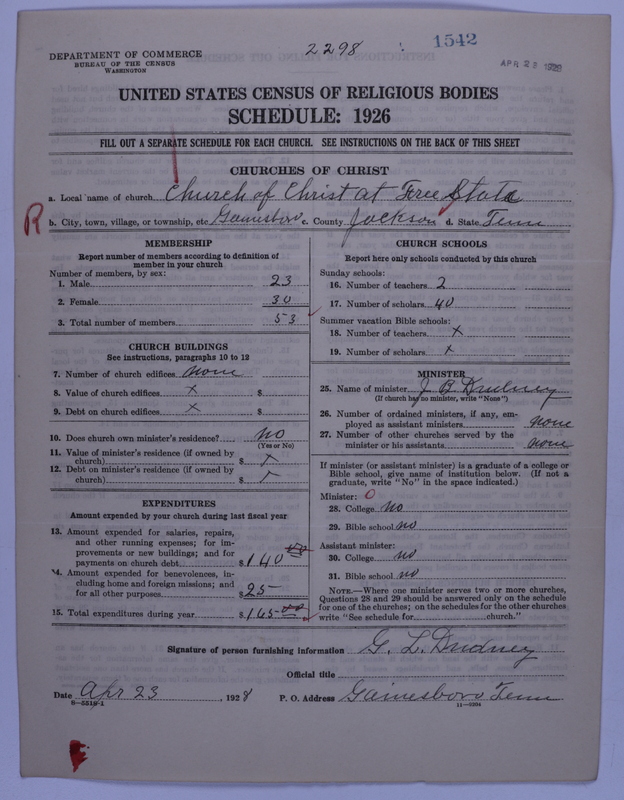 2298
1542
DEPARTMENT OF COMMERCE
BUREAU OF THE CENSUS
WASHINGTON
APR 28 1928
UNITED STATES CENSUS OF RELIGIOUS BODIES
SCHEDULE: 1926
FILL OUT A SEPARATE SCHEDULE FOR EACH CHURCH. SEE INSTRUCTIONS ON THE BACK OF THIS SHEET
CHURCHES OF CHRIST
a. Local name of church Church of Christ at Free State
R
b. City, town, village, or township, etc. Gainesboro c. County Jackson d. State Tenn
MEMBERSHIP
Report number of members according to definition of
member in your church
Number of members, by sex:
1. Male 23
2. Female 30
3. Total number of members 53
CHURCH BUILDINGS
See instructions, paragraphs 10 to 12
7. Number of church edifices none
8. Value of church edifices x $
9. Debt on church edifices x $
10. Does church own minister's residence? no
(Yes or No)
11. Value of minister's residence (if owned by
church) $ x
12. Debt on minister's residence (if owned by
church) $ x
EXPENDITURES
Amount expended by your church during last fiscal year
13. Amount expended for salaries, repairs,
and other running expenses; for im-
provements or new buildings; and for
payments on church debt $ 140
14. Amount expended for benevolences, in-
cluding home and foreign missions; and
for all other purposes $ 25
15. Total expenditures during year $ 165
CHURCH SCHOOLS
Report here only schools conducted by this church
Sunday schools:
16. Number of teachers 2
17. Number of scholars 40
Summer vacation Bible schools:
18. Number of teachers x
19. Number of scholars x
MINISTER
25. Name of minister J. B. Dudney
(If church has no minister, write "None")
26. Number of ordained ministers, if any, em-
ployed as assistant ministers none
27. Number of other churches served by the
minister or his assistants none
If minister (or assistant minister) is a graduate of a college or
Bible school, give name of institution below. (If not a
graduate, write "No" in the space indicated.)
Minister: 0
28. College no
29. Bible school no
Assistant minister:
30. College no
31. Bible school no
NOTE.—Where one minister serves two or more churches,
Questions 28 and 29 should be answered only on the schedule
for one of the churches; on the schedules for the other churches
write "See schedule for church."
Signature of person furnishing information G. L. Dudney
Official title
Date Apr 23, 1928 P. O. Address Gainesboro Tenn
8-5516-1
11-9204